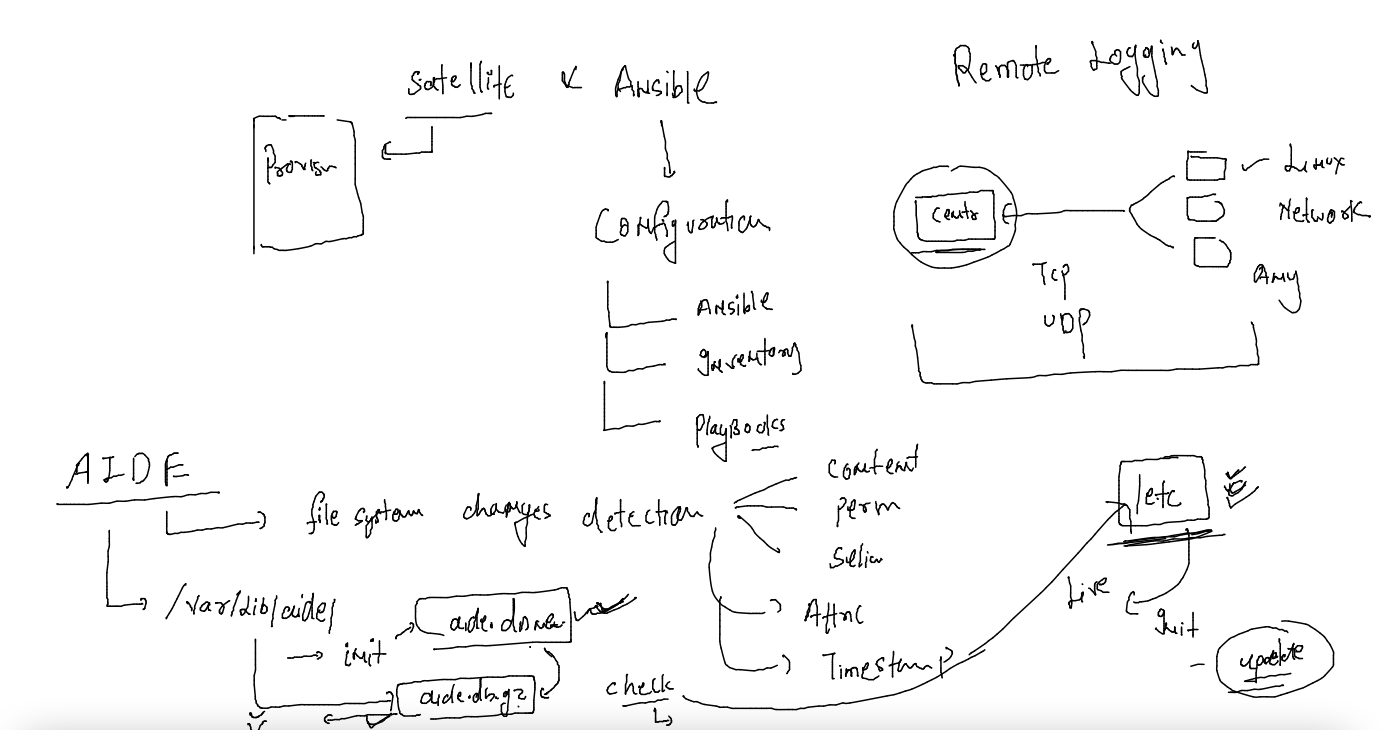 Satellite & Ansible
Provisn
Configuration
Ansible
Inventory
PlayBooks
Remote Logging
Centr
Linux
Network
Any
TCP
UDP
AIDE
file system changes detection
content
perm
Selin
Attric
Timestamp
/var/lib/aide/
init
aide.db.new
aide.db.gz
check
/etc
Live
Init
- update